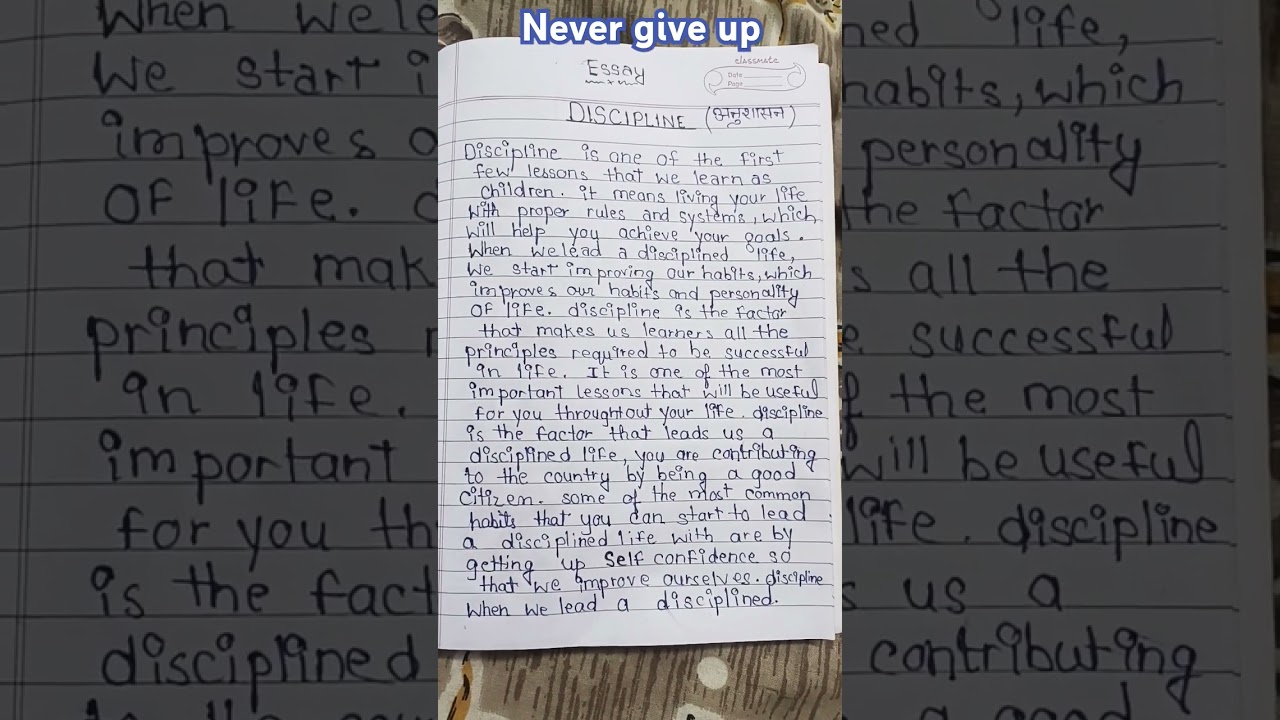 Never give up
Essay
classmate
Date
Page
DISCIPLINE (अनुशासन)
Discipline is one of the first
few lessons that we learn as
children. it means living your life
with proper rules and systems, which
will help you achieve your goals.
When we lead a disciplined life,
We start improving our habits, which
improves our habits and personality
OF life. discipline is the factor
that makes us learners all the
principles required to be successful
in life. It is one of the most
important lessons that will be useful
for you throughtout your life. discipline
is the factor that leads us a
disciplined life, you are contributing
to the country by being a good
citizen. some of the most common
habits that you can start to lead
a disciplined life with are by
getting up Self confidence so
that we improve ourselves. discipline
when we lead a disciplined.